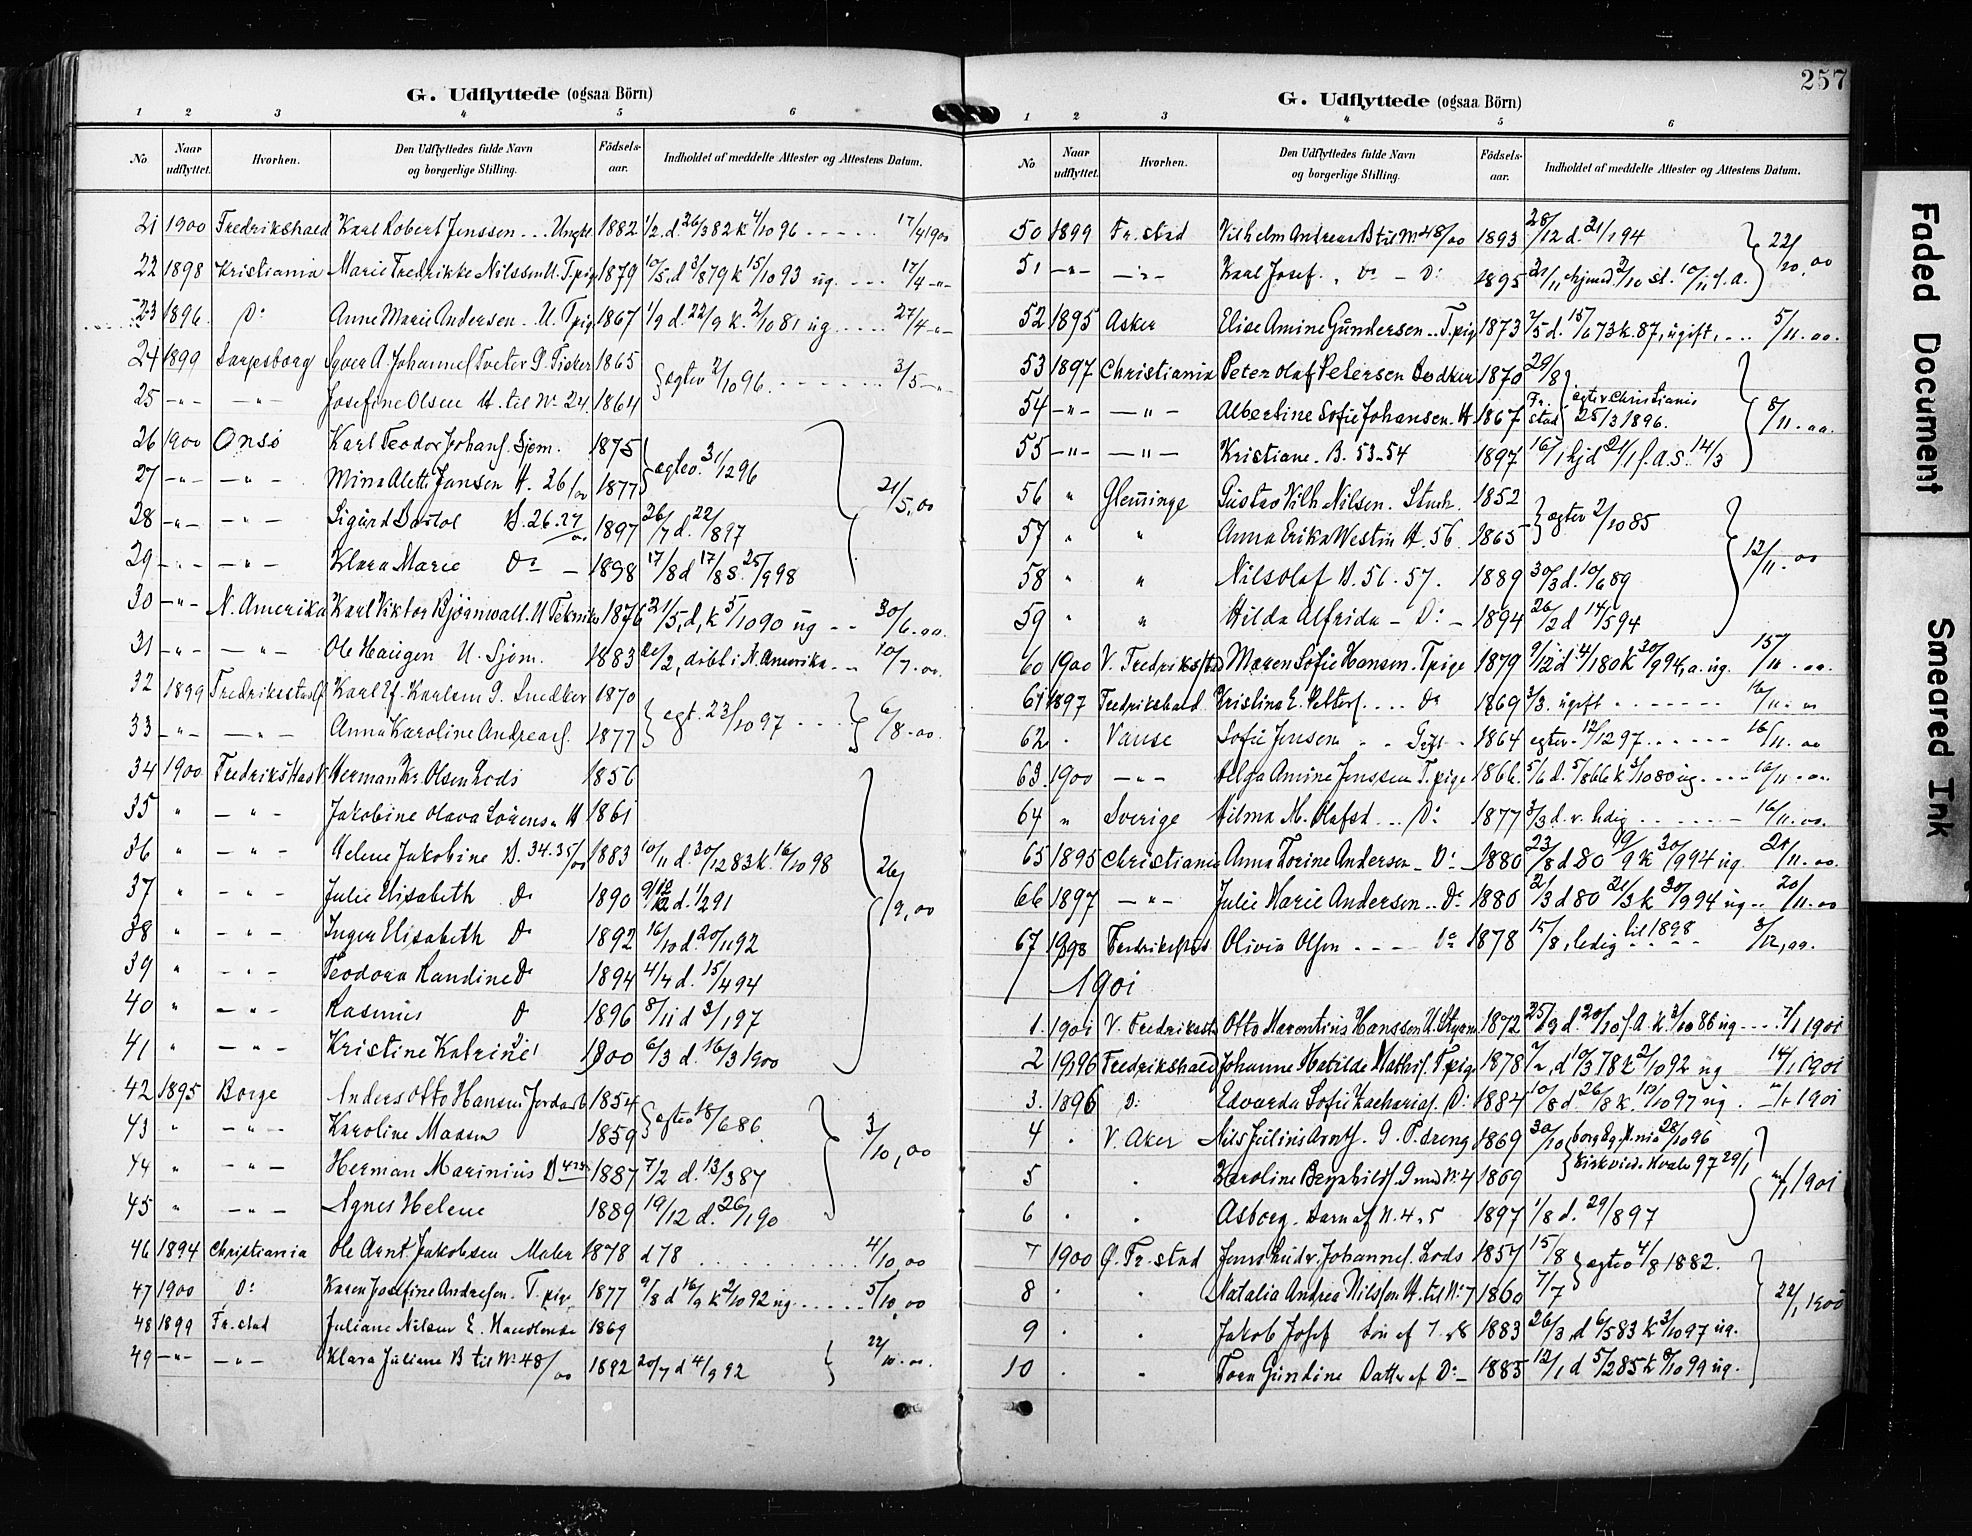 G. Udflyttede (ogsaa Börn)
1 2 3 4 5 6
No Naar udflyttet. Hvorhen. Den Udflyttedes fulde Navn og borgerlige Stilling. Födsels-aar. Indholdet af meddelte Attester og Attestens Datum.
21 1900 Fredrikshald Karl Robert Jenssen 1882 1/2 d. 26/3 82 k 4/10 96 17/4 1900
22 1898 Kristiania Marie Fredrikke Nilssen U. T.pig 1879 10/5 d 3/8 79 k 15/10 93 ug. 17/4 -"-
23 1896. Do Anne Marie Andersen U. T.pig 1867 1/9 d. 22/9 k. 2/10 81 ug 27/4 -"-
24 1899 Sarpsborg A. Johannes Tveter G. Fisker 1865 egtev 2/10 96 3/5 -"-
25 -"- -"- Josefine Olsen H. til No 24. 1864
26 1900 Onsö Karl Teodor Johans. Sjøm. 1875 egtev. 31/12 96
27 -"- -"- Mina Aletti Jansen H. 26/00 1877 21/5, 00
28 -"- -"- Sigurd B. 26.27/00 1897 26/7 d. 22/8 97
29 -"- -"- Klara Marie Do 1898 17/8 d 17/8 S. 25/9 98
30 -"- N. Amerika Karl Viktor Bjørnwall. U Tekniker 1876 21/5, d, k 5/10 90 ug 30/6. 00.
31 -"- -"- Ole Haugen U. Sjøm. 1883 /2, døbt i N. Amerika 10/7. 00.
32 1899 Fredrikstad Karl Karlsen G. Snedker 1870 egt. 23/10 97 6/8. 00.
33 -"- -"- Anna Karoline Andreass. 1877
34 1900 Fredrikstad V Herman Kr. Olsen Lods 1856
35 " -"- Jakobine Olava Sörens. H 1861
36 " -"- Helene Jakobine B. 34.35/00 1883 10/11 d. 30/12 83 k. 16/10 98 26/9, 00
37 " -"- Julie Elisabeth Do 1890 9/12 d. 1/2 91
38 " -"- Inger Elisabeth Do 1892 16/10 d. 20/11 92
39 " -"- Teodora Randine Do 1894 4/4 d. 15/4 94
40 " -"- Rasmus Do 1896 8/11 d 3/1 97
41 " -"- Kristine Katrine 1900 6/3 d. 16/3 1900
42 1895 Borge Anders Otto Hansen Jordarb 1854 egtev 18/6 86
43 " -"- Karoline Madsen 1859 3/10, 00
44 " -"- Herman Marinius B 1887 7/2 d. 13/3 87
45 " -"- Agnes Helene 1889 19/12 d. 26/1 90
46 1894 Christiania Ole Arnt Jakobsen Maler 1878 d 78 4/10, 00
47 1900 Do Karen Josefine Andresen. T.pige 1877 9/8 d 16/9 k 2/10 92 ug 5/10, 00
48 1899 Fr.stad Juliane Nilsen E. 1869
49 -"- -"- Klara Juliane B til No 48/00 1892 20/7 d 4/9 92 22/10. 00.
257
G. Udflyttede (ogsaa Börn)
1 2 3 4 5 6
No Naar udflyttet. Hvorhen. Den Udflyttedes fulde Navn og borgerlige Stilling. Födsels-aar. Indholdet af meddelte Attester og Attestens Datum.
50 1899 Fr.stad Vilhelm Andreas B til No 48/00 1893 28/12 d. 21/1 94 22/10, 00
51 -"- -"- Karl Josef. Do - Do 1895 21/11 hjmed. 2/10 st. 10/11 f.a.
52 1895 Asker Elise Amine Gundersen T.pig 1873 /5 d. 15/6 73 k. 87, ugift, 5/11. 00.
53 1897 Christiania Peter Olaf Petersen Bødker 1870 29/8 egtev Christiania
54 -"- -"- Albertine Sofie Johansen. H 1867 Fr.stad 25/3 1896. 8/11. 00.
55 -"- -"- Kristiane. B. 53-54 1897 16/1 hjd 21/1 f.a.S. 14/3
56 " Glemminge Gustav Vilh. Nilsen. 1852 egtev 2/10 85
57 " " Anna Erika Westin H. 56. 1865 12/11. 00
58 " " Nils Olaf B. 56. 57. 1889 30/3 d. 10/6 89
59 " " Hilda Alfrida - Do - 1894 26/2 d 14/5 94
60 1900 V. Fredrikstad Maren Sofie Hansen. T.pige 1879 9/12 d 4/1 80 k 30/9 94, a. ug. 15/11. 00.
61 1897 Fredrikshald Kristina E. Petters. Do 1869 3/3. ugift 16/11. "
62 . Vanse Sofie Jensen 1864 egtev. 12/12 97 16/11. 00
63. 1900 -"- Helga Amine Jenssen T.pige 1866. 5/6 d. 5/8 66 k 3/10 80 ug. 16/11. 00.
64 " Sverige Hilma M. Do 1877 3/3 d. v. ledig 16/11. 00.
65 1895 Christiania Anna Torine Andersen Do 1880 23/8 d 80 19/9 k 30/9 94 ug. 20/11. 00.
66 1897 -"- Julie Marie Andersen Do 1880 2/3 d 80 21/3 k 30/9 94 ug 20/11. 00
67 1898 Fredrikstad Olivia Olsen Do 1878 15/8, ledig til 1898 3/12, 00.
1901
1. 1901 V. Fredrikst. Otto Marentius Hanssen U. Styrm 1872 25/9 d. 20/10 f.a. k. 3/10 86 ug 7/1 1901
2 1896 Fredrikshald Johanne Matilde Mathis. T.pig 1878 d 10/3 78 k 2/10 92 ug 14/1 1901
3. 1896 Do Edvarda Sofie Zacharias. Do 1884 10/8 d 26/8 k. 10/10 97 ug. "/1 1901
4 . V. Aker Nils Julius Arnts. G. T.dreng 1869 30/10 borg. 28/10 96
5 . Karoline Bernhilds. G med No 4 1869 kirkviede Hvaler 97 29/1 "/1 1901
6 . . Asborg. Barn af N. 4.5 1897 1/8 d. 29/8 97
7 1900 Ø. Fr.stad Jens Ludv. Johannes. Lods 1857 15/8 egtev 4/8 1882.
8 . . Natalia Andrea Nilssen H. til No 7 1860 7/7 22/1 1900
9 . . Jakob Josef Søn af 7. 8 1883 26/3, d 6/5 83 k 3/10 97 ug.
10 . . Tora Gundine Datter af Do 1885 12/1 d 5/2 85 k 8/10 99 ug.
Faded Document
Smeared Ink